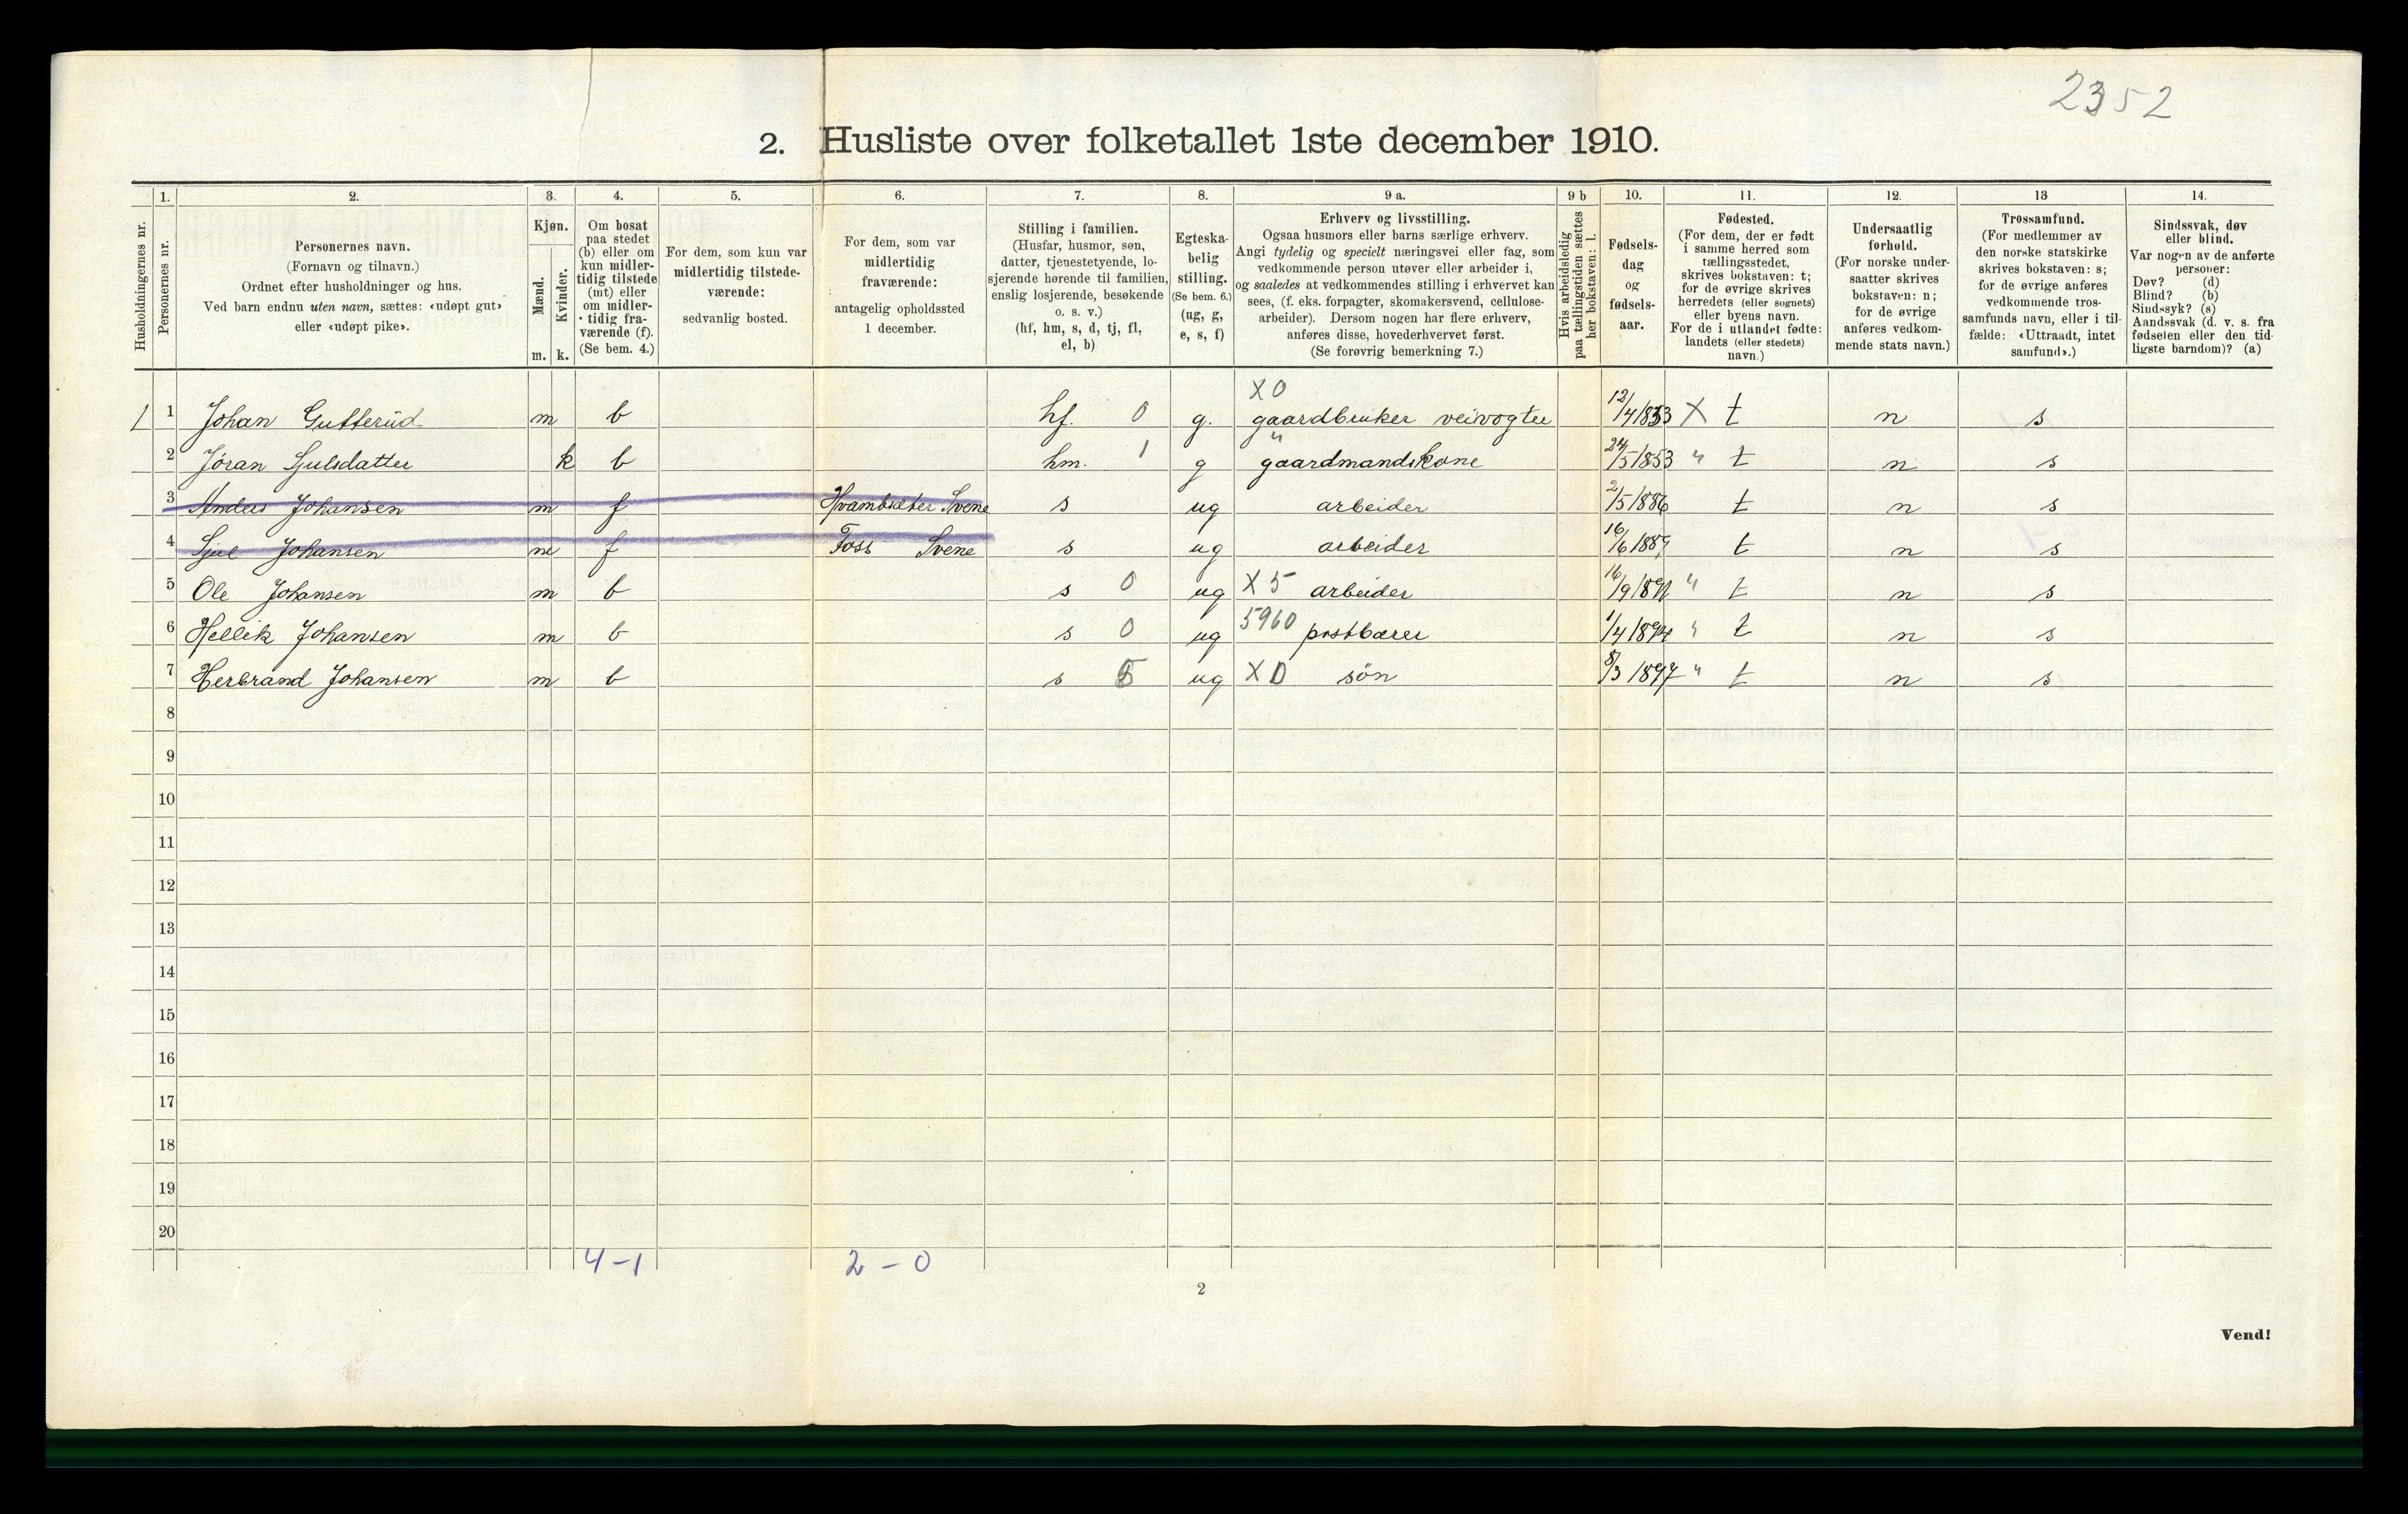 2352
2. Husliste over folketallet 1ste december 1910.
Husholdningernes nr.
1.
Personernes nr.
2.
Personernes navn.
(Fornavn og tilnavn.)
Ordnet efter husholdninger og hus.
Ved barn endnu uten navn, sættes: «udøpt gut»
eller «udøpt pike».
3.
Kjøn.
Mænd.
Kvinder.
m. k.
4.
Om bosat
paa stedet
(b) eller om
kun midler-
tidig tilstede
(mt) eller
om midler-
tidig fra-
værende (f).
(Se bem. 4.)
5.
For dem, som kun var
midlertidig tilstede-
værende:
sedvanlig bosted.
6.
For dem, som var
midlertidig
fraværende:
antagelig opholdssted
1 december.
7.
Stilling i familien.
(Husfar, husmor, søn,
datter, tjenestetyende, lo-
sjerende hørende til familien,
enslig losjerende, besøkende
o. s. v.)
(hf, hm, s, d, tj, fl,
el, b)
8.
Egteska-
belig
stilling.
(Se bem. 6.)
(ug, g,
e, s, f)
9 a.
Erhverv og livsstilling.
Ogsaa husmors eller barns særlige erhverv.
Angi tydelig og specielt næringsvei eller fag, som
vedkommende person utøver eller arbeider i,
og saaledes at vedkommendes stilling i erhvervet kan
sees, (f. eks. forpagter, skomakersvend, cellulose-
arbeider). Dersom nogen har flere erhverv,
anføres disse, hovederhvervet først.
(Se forøvrig bemerkning 7.)
9 b
Hvis arbeidsledig
paa tællingstiden sættes
her bokstaven: l.
10.
Fødsels-
dag
og
fødsels-
aar.
11.
Fødested.
(For dem, der er født
i samme herred som
tællingsstedet,
skrives bokstaven: t;
for de øvrige skrives
herredets (eller sognets)
eller byens navn.
For de i utlandet fødte:
landets (eller stedets)
navn.)
12.
Undersaatlig
forhold.
(For norske under-
saatter skrives
bokstaven: n;
for de øvrige
anføres vedkom-
mende stats navn.)
13
Trossamfund.
(For medlemmer av
den norske statskirke
skrives bokstaven: s;
for de øvrige anføres
vedkommende tros-
samfunds navn, eller i til-
fælde: «Uttraadt, intet
samfund».)
14.
Sindssvak, døv
eller blind.
Var nogen av de anførte
personer:
Døv? (d)
Blind? (b)
Sindssyk? (s)
Aandssvak (d. v. s. fra
fødselen eller den tid-
ligste barndom)? (a)
X 0
1 1 Johan Gutterud m b hf. 0 g. gaardbruker veivogter 12/4 1853 X t n s
2 Jøran Sjulsdatter k b hm. 1 g " gaardmandskone 24/5 1853 " t n s
3 Anders Johansen m f Hvambsæter Svene s ug arbeider 2/5 1886 t n s
4 Sjul Johansen m f Foss Svene s ug arbeider 16/6 1889 t n s
5 Ole Johansen m b s 0 ug X 5 arbeider 16/9 1891 " t n s
6 Hellik Johansen m b s 0 ug 5960 postbærer 1/4 1894 " t n s
7 Herbrand Johansen m b s 5 ug X 0 søn 8/3 1897 " t n s
8
9
10
11
12
13
14
15
16
17
18
19
20
4 - 1 2 - 0
2
Vend!